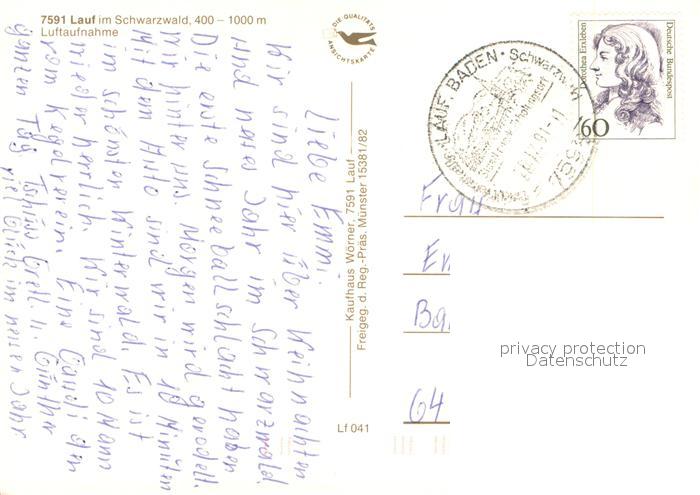 7591 Lauf im Schwarzwald, 400 – 1000 m
Luftaufnahme
DIE QUALITÄTS
ANSICHTSKARTE
Liebe Emmi
Wir sind hier über Weihnachten
und neues Jahr im Schwarzwald.
Die erste Schneeballschlacht haben
wir hinter uns. Morgen wird gerodelt.
Mit dem Auto sind wir in 10 Minuten
im schönsten Winterwald. Es ist
wieder herrlich. Wir sind 10 Mann
vom Kegelverein. Eine Gaudi den
ganzen Tag. Tschüss Gretl. u. Günther
viel Glück im neuen Jahr
Kaufhaus Wörner, 7591 Lauf
Freigeg. d. Reg.-Präs. Münster 15381/82
Lf 041
LAUF, BADEN · Schwarzwald
7591
Dorothea Erxleben
Deutsche Bundespost
60
Frau
Em
Ba
64
privacy protection
Datenschutz